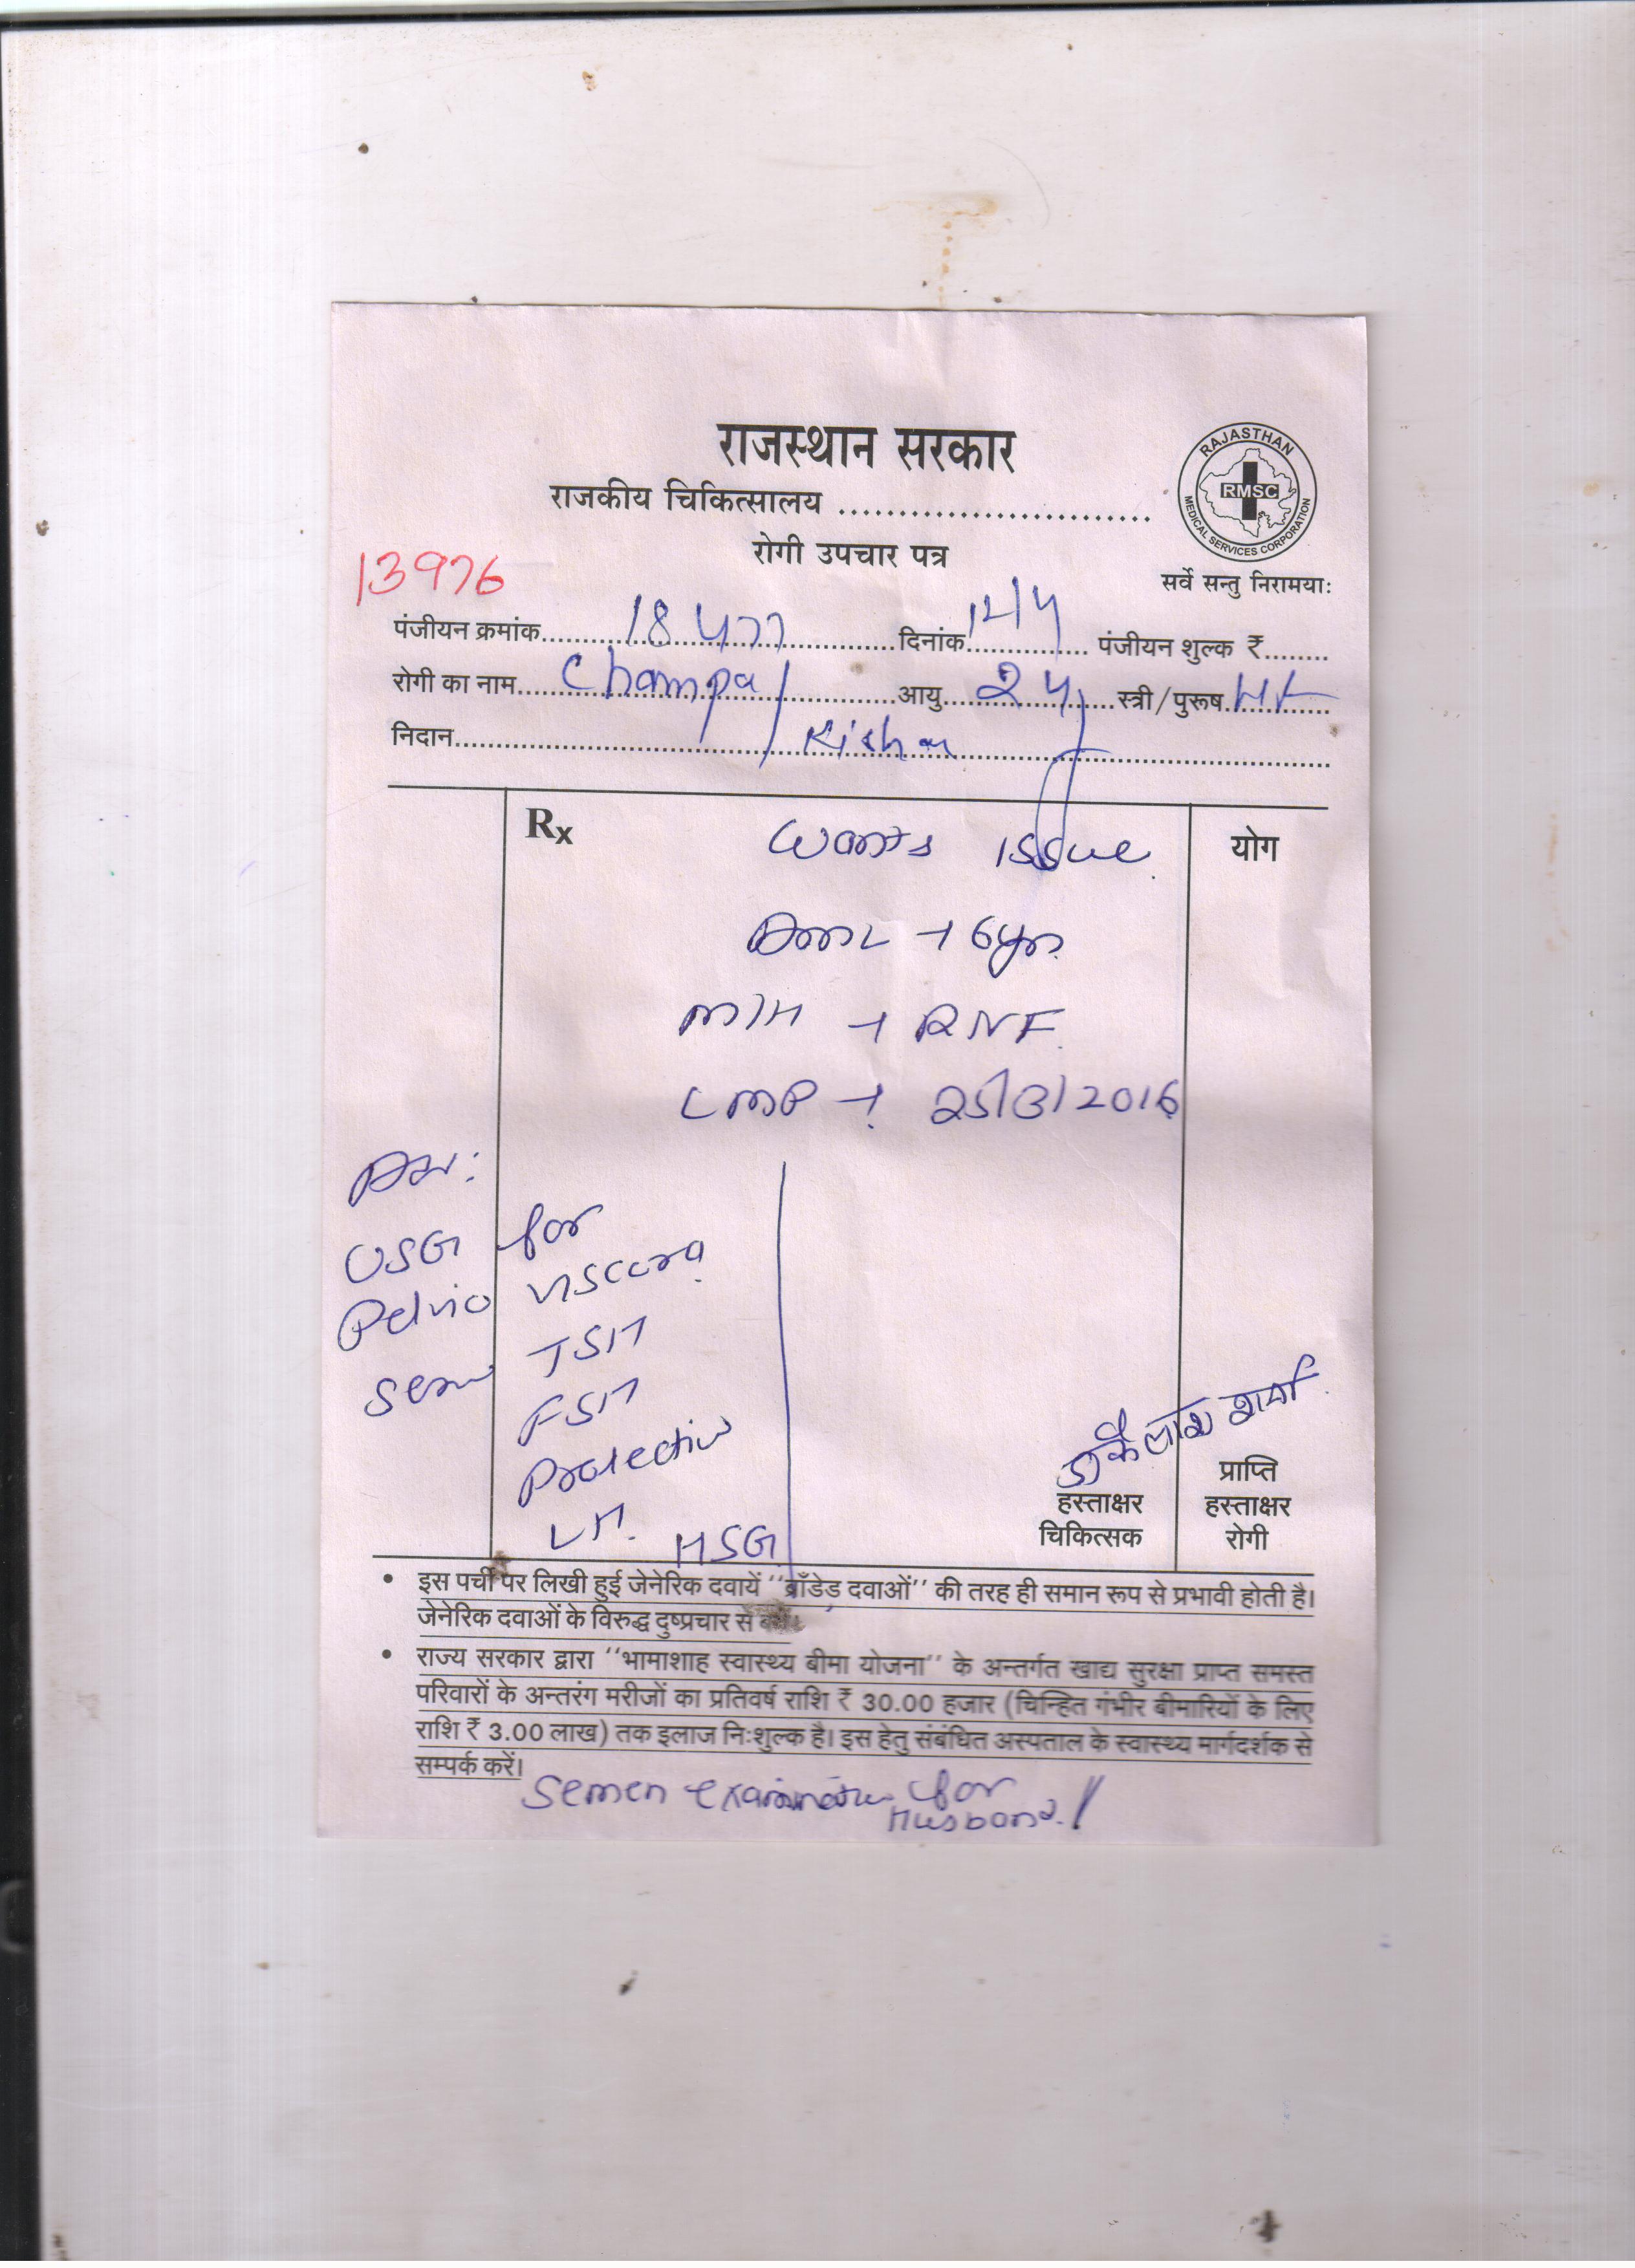 राजस्थान सरकार
राजकीय चिकित्सालय ..........................
RAJASTHAN
RMSC
MEDICAL SERVICES CORPORATION
रोगी उपचार पत्र
सर्वे सन्तु निरामयाः
13976
पंजीयन क्रमांक 18477 दिनांक 12/4 पंजीयन शुल्क ₹........
रोगी का नाम Champa / आयु 24 स्त्री/पुरूष
निदान Kishan
Rx Wants issue योग
→ 6yrs
M/H → RNF
LMP → 25/3/2016
Adv:
USG for
Pelvic viscera
Serum TSH
FSH
Prolactin
LH.
HSG
डॉ कैलाश शर्मा
हस्ताक्षर
चिकित्सक
प्राप्ति
हस्ताक्षर
रोगी
• इस पर्ची पर लिखी हुई जेनेरिक दवायें ''ब्राँडेड दवाओं'' की तरह ही समान रूप से प्रभावी होती है।
जेनेरिक दवाओं के विरुद्ध दुष्प्रचार से
• राज्य सरकार द्वारा ''भामाशाह स्वास्थ्य बीमा योजना'' के अन्तर्गत खाद्य सुरक्षा प्राप्त समस्त
परिवारों के अन्तरंग मरीजों का प्रतिवर्ष राशि ₹ 30.00 हजार (चिन्हित गंभीर बीमारियों के लिए
राशि ₹ 3.00 लाख) तक इलाज निःशुल्क है। इस हेतु संबंधित अस्पताल के स्वास्थ्य मार्गदर्शक से
सम्पर्क करें।
Semen examination for
Husband.